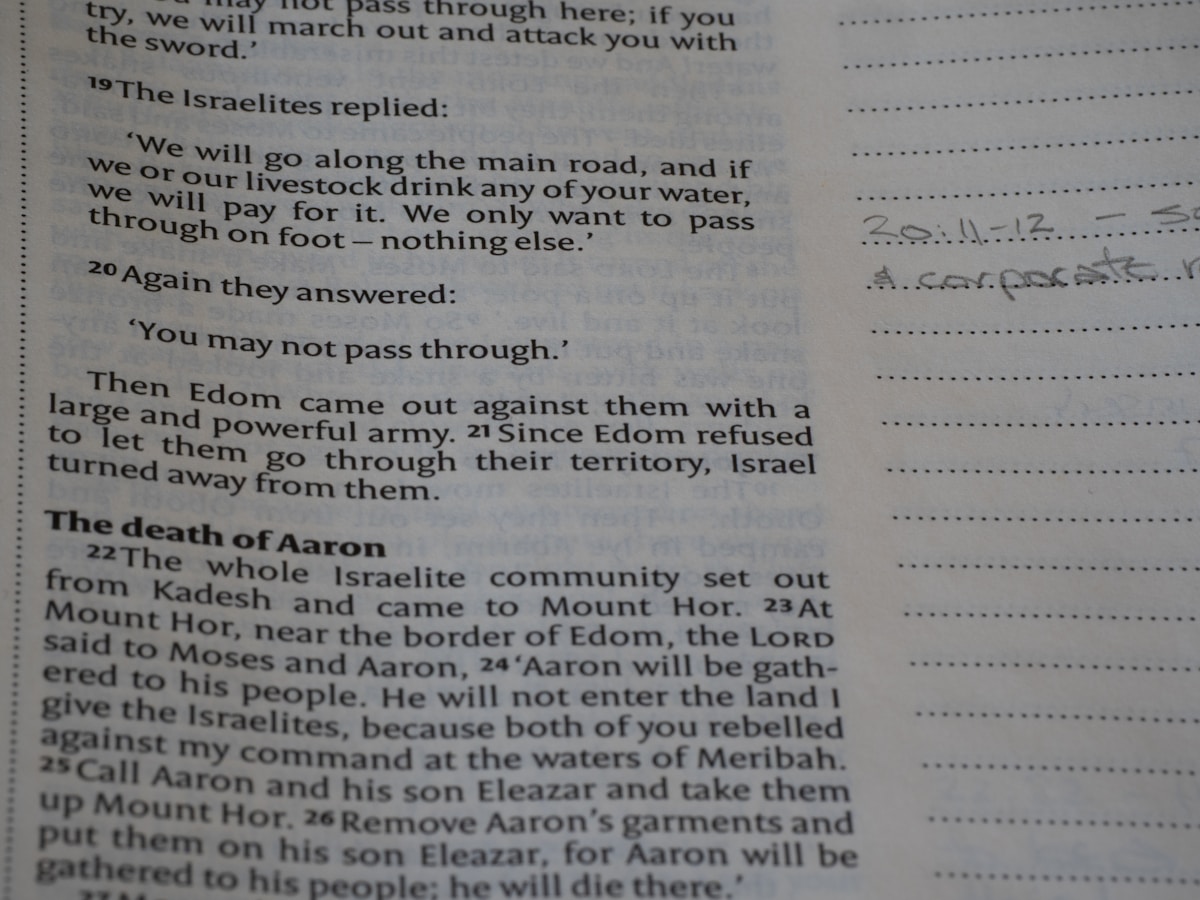 may not pass through here; if you
try, we will march out and attack you with
the sword.’
19 The Israelites replied:
‘We will go along the main road, and if
we or our livestock drink any of your water,
we will pay for it. We only want to pass
through on foot – nothing else.’
20 Again they answered:
‘You may not pass through.’
Then Edom came out against them with a
large and powerful army. 21 Since Edom refused
to let them go through their territory, Israel
turned away from them.
The death of Aaron
22 The whole Israelite community set out
from Kadesh and came to Mount Hor. 23 At
Mount Hor, near the border of Edom, the LORD
said to Moses and Aaron, 24 ‘Aaron will be gath-
ered to his people. He will not enter the land I
give the Israelites, because both of you rebelled
against my command at the waters of Meribah.
25 Call Aaron and his son Eleazar and take them
up Mount Hor. 26 Remove Aaron’s garments and
put them on his son Eleazar, for Aaron will be
gathered to his people; he will die there.’
20:11-12 –
& corporate